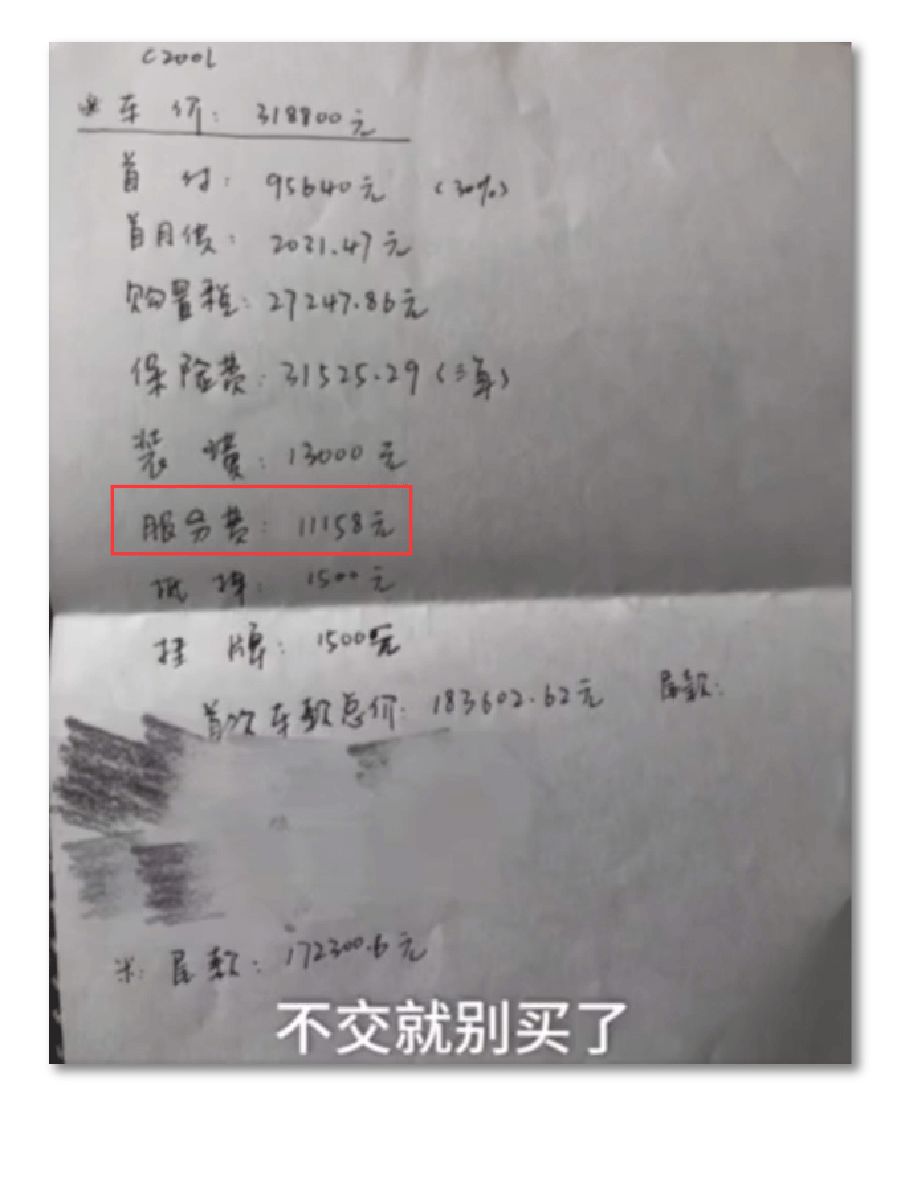 C200L
※车价：318800元
首付：95640元（30%）
首月供：2031.47元
购置税：27247.86元
保险费：31525.29（三年）
装潢：13000元
服务费：11158元
抵押：1500元
挂牌：1500元
首次车款总价：183602.62元 尾款：
※：尾款：172300.6元
不交就别买了